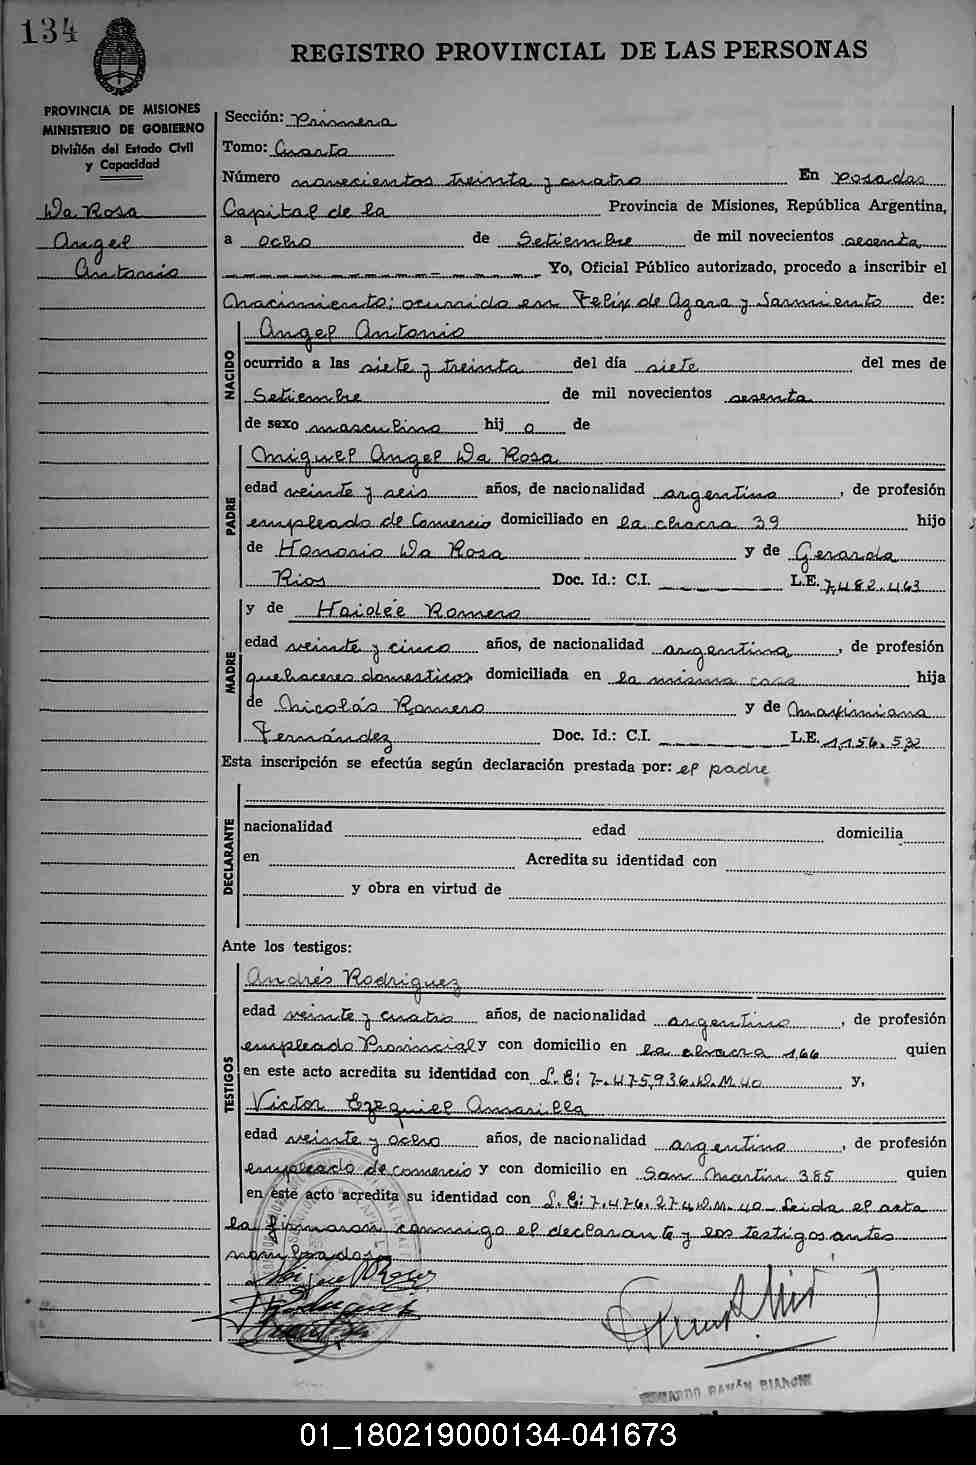 134
REGISTRO PROVINCIAL DE LAS PERSONAS
PROVINCIA DE MISIONES
MINISTERIO DE GOBIERNO
División del Estado Civil
y Capacidad
Da Rosa
Angel
Antonio
Sección: Primera
Tomo: Cuarto
Número novecientos treinta y cuatro En Posadas
Capital de la Provincia de Misiones, República Argentina,
a ocho de Setiembre de mil novecientos sesenta
Yo, Oficial Público autorizado, procedo a inscribir el
Nacimiento; ocurrido en Felix de Azara y Sarmiento de:
NACIDO
Angel Antonio
ocurrido a las siete y treinta del día siete del mes de
Setiembre de mil novecientos sesenta
de sexo masculino hij o de
PADRE
Miguel Angel Da Rosa
edad veinte y seis años, de nacionalidad argentino, de profesión
empleado de Comercio domiciliado en la chacra 39 hijo
de Honorio Da Rosa y de Gerarda
Rios Doc. Id.: C.I. L.E. 7.482.463
MADRE
y de Haidée Romero
edad veinte y cinco años, de nacionalidad argentina, de profesión
quehaceres domesticos domiciliada en la misma casa hija
de Nicolás Romero y de Maximiana
Fernández Doc. Id.: C.I. L.E. 1.156.532
Esta inscripción se efectúa según declaración prestada por: el padre
DECLARANTE
nacionalidad edad domicilia
en Acredita su identidad con
y obra en virtud de
Ante los testigos:
TESTIGOS
Andrés Rodriguez
edad veinte y cuatro años, de nacionalidad argentino, de profesión
empleado Provincial y con domicilio en la chacra 166 quien
en este acto acredita su identidad con L.E: 7.475,936.D.M.40 y,
Victor Ezequiel Amarilla
edad veinte y ocho años, de nacionalidad argentino, de profesión
empleado de comercio y con domicilio en San Martin 385 quien
en este acto acredita su identidad con L.E: 7.476.274.D.M.40 - Leida el acta
la firmaron conmigo el declarante y los testigos antes
nombrados
RAMÓN BIANCHI
01_180219000134-041673